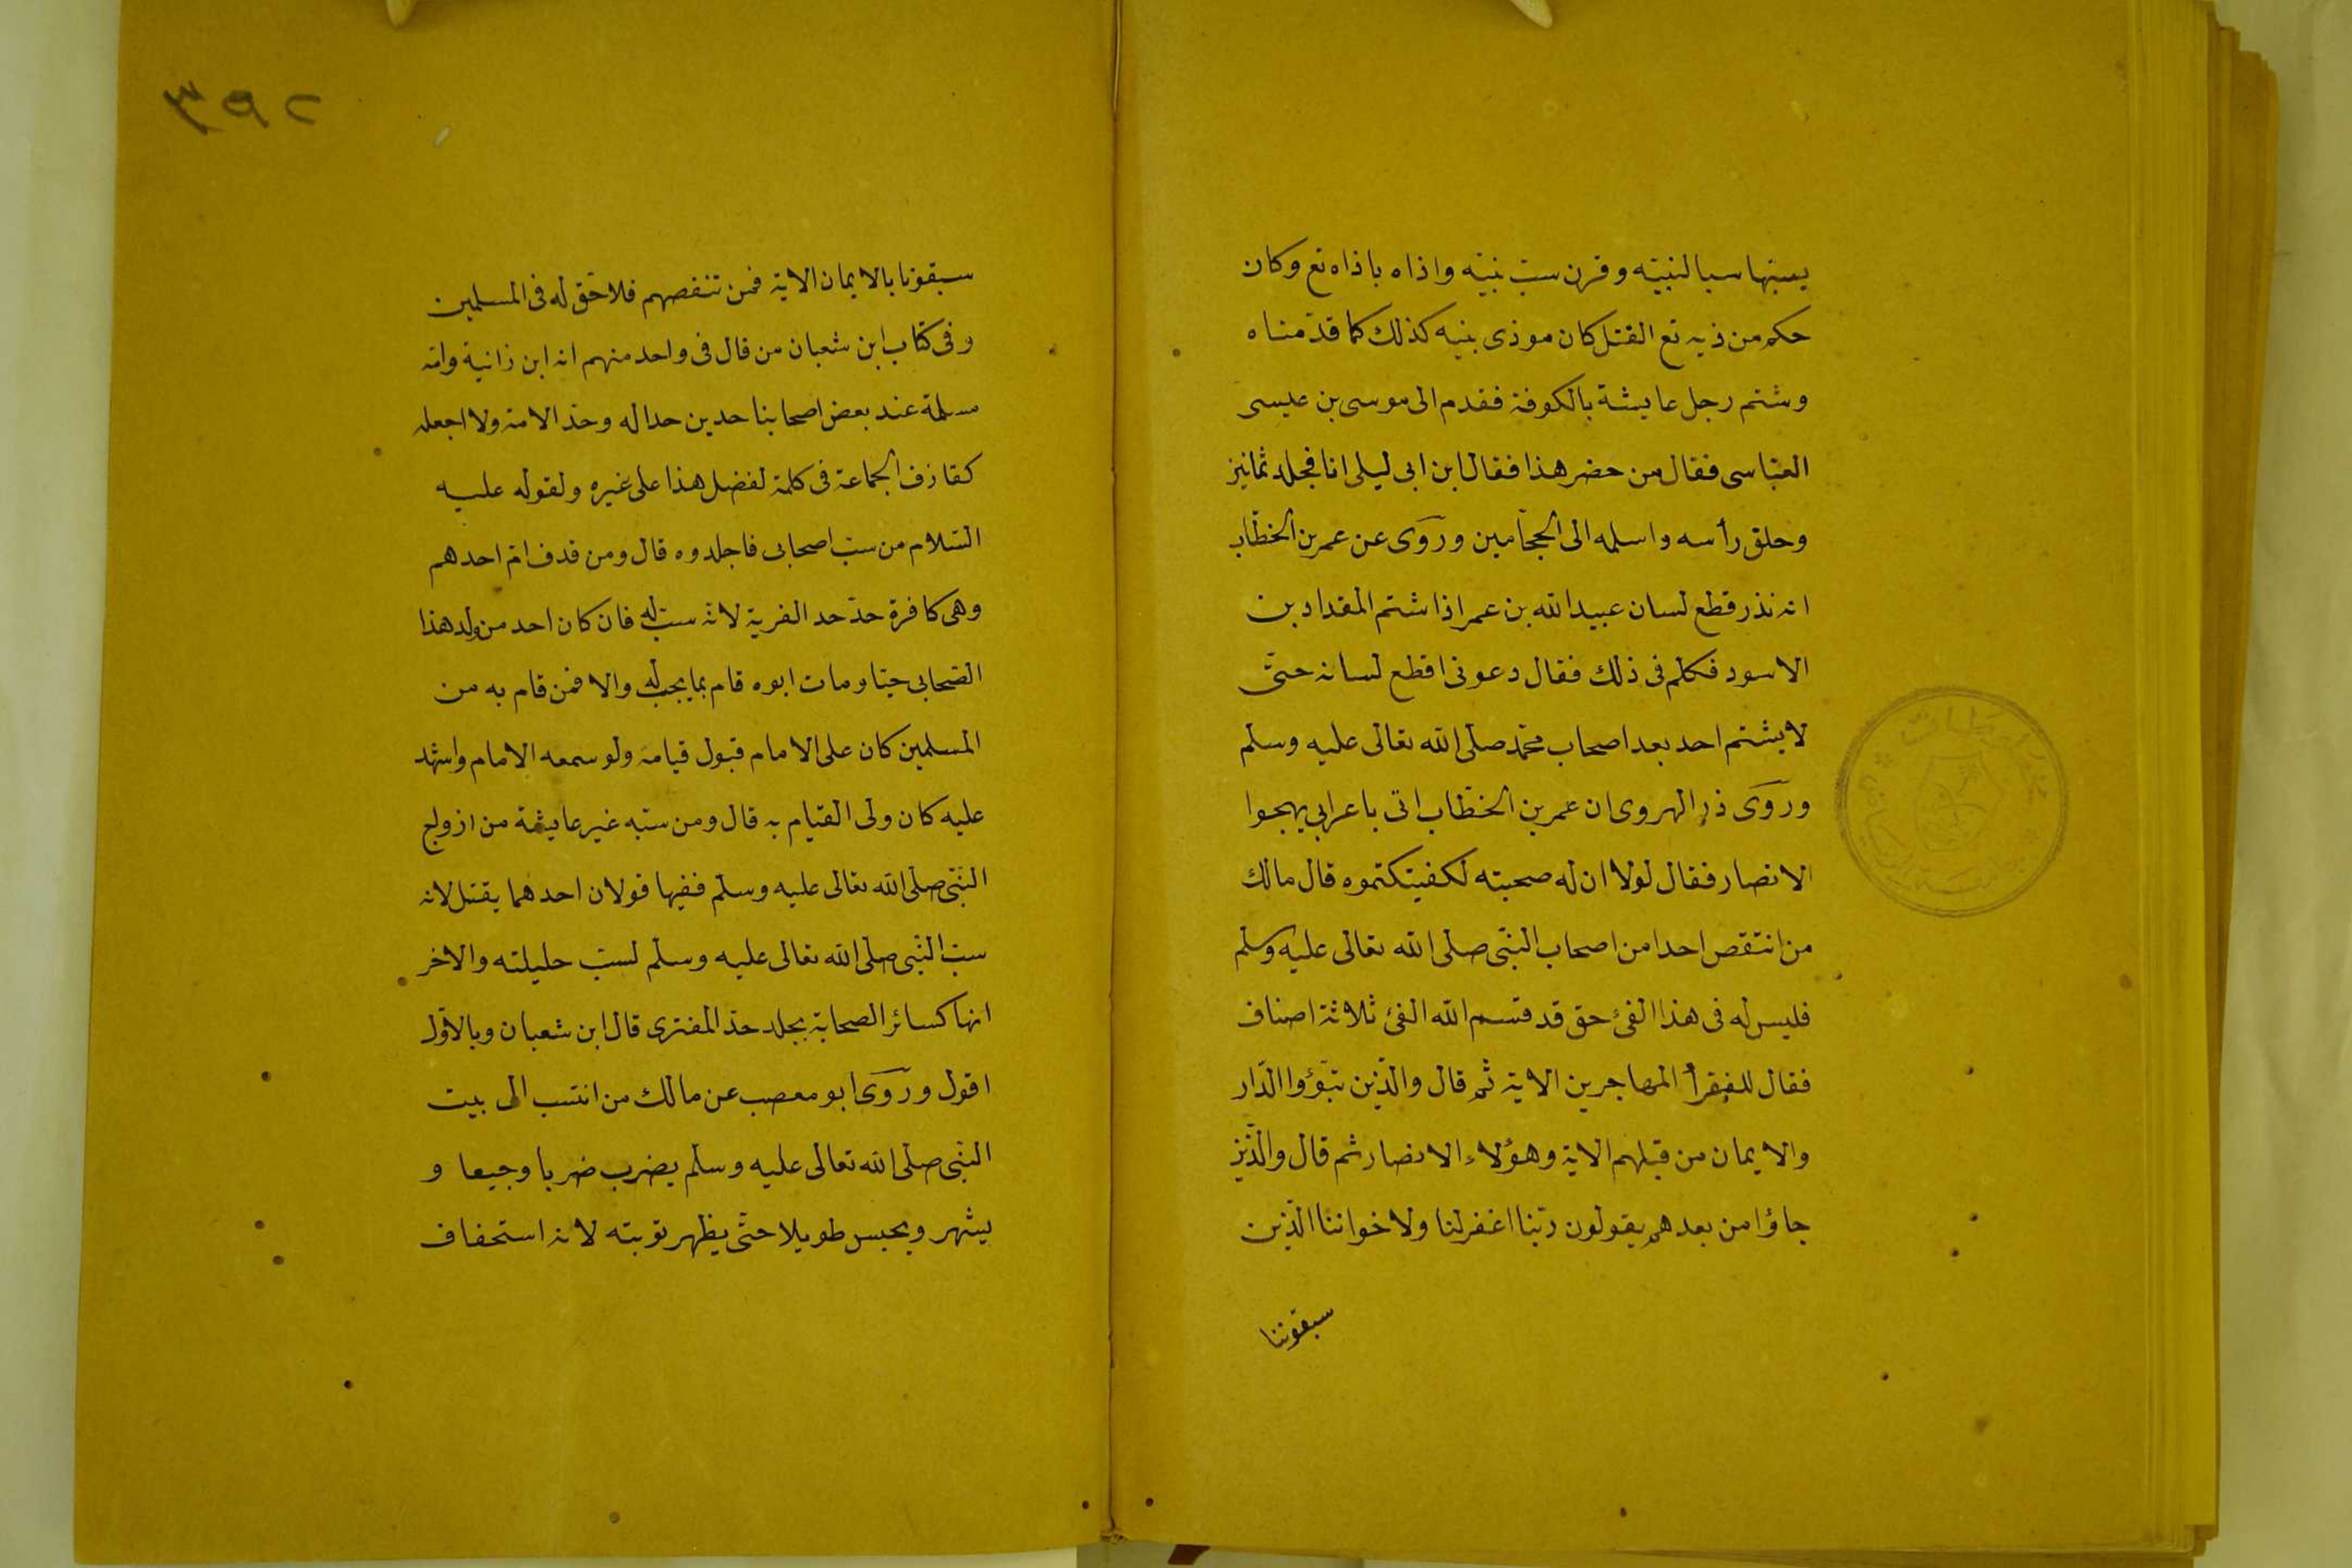 يسبّها سبا لنبيّه وقرن سبّ نبيّه واذاه باذاه تع وكان
حكم من ذيه تع القتل كان موذى بنيه كذلك كما قدّمناه
وشتم رجل عايشة بالكوفة فقدم الى موسى بن عيسى
العبّاسى فقال من حضر هذا فقال ابن ابى ليلى انا فجلد ثمانيز
وحلق رأسه واسلمه الى الحجّامين وروى عن عمر بن الخطّاب
انه نذر قطع لسان عبيد الله بن عمر اذا شتم المقداد بن
الاسود فكلّم فى ذلك فقال دعونى اقطع لسانه حتّى
لا يشتم احد بعد اصحاب محمّد صلى الله تعالى عليه وسلم
وروى ذر الهروى ان عمر بن الخطّاب اتى باعرابي يهجوا
الانصار فقال لولا ان له صحبته لكفيتكتموه قال مالك
من انتقص احدا من اصحاب النبّى صلى الله تعالى عليه وسلم
فليس له فى هذا الفئ حق قد قسم الله الفئ ثلاثة اصناف
فقال للفقرأ المهاجرين الاية ثم قال والذين تبوّؤا الدّار
والايمان من قبلهم الاية وهؤلاء الانصار ثم قال والذّيز
جاؤا من بعدهم يقولون ربّنا اغفر لنا ولاخواننا الذين
سبقوننا
٣٩٢
سبقونا بالايمان الاية فمن تنقصهم فلا حقّ له فى المسلمين
وفى كتاب ابن شعبان من قال فى واحد منهم انه ابن زانية وامّه
مسلمة عند بعض اصحابنا حدين حدا له وحدّ الامة ولا اجعله
كقاذف الجماعة فى كلمة لفضل هذا على غيره ولقوله عليه
السّلام من سبّ اصحابى فاجلدوه قال ومن قدف امّ احدهم
وهى كافرة حدّ حد الفرية لانّه سبّ له فان كان احد من ولد هذا
الصّحابى حيّا ومات ابوه قام بما يجب له والا فمن قام به من
المسلمين كان على الامام قبول قيامه ولو سمعه الامام واشهد
عليه كان ولى القيام به قال ومن سبّه غير عايشة من ازولج
النبّى صلى الله تعالى عليه وسلم ففيها قولان احدهما يقتل لانه
سبّ النبّى صلى الله تعالى عليه وسلم لسبّ حليلته والاخر
انها كسائر الصحابة بجلد حدّ المفترى قال ابن شعبان وبالاوّل
اقول وروى ابو معصب عن مالك من انتسب الى بيت
النبّى صلى الله تعالى عليه وسلم يضرب ضربا وجيعا و
يشهر ويحبس طويلا حتّى يظهر توبته لانه استحفاف